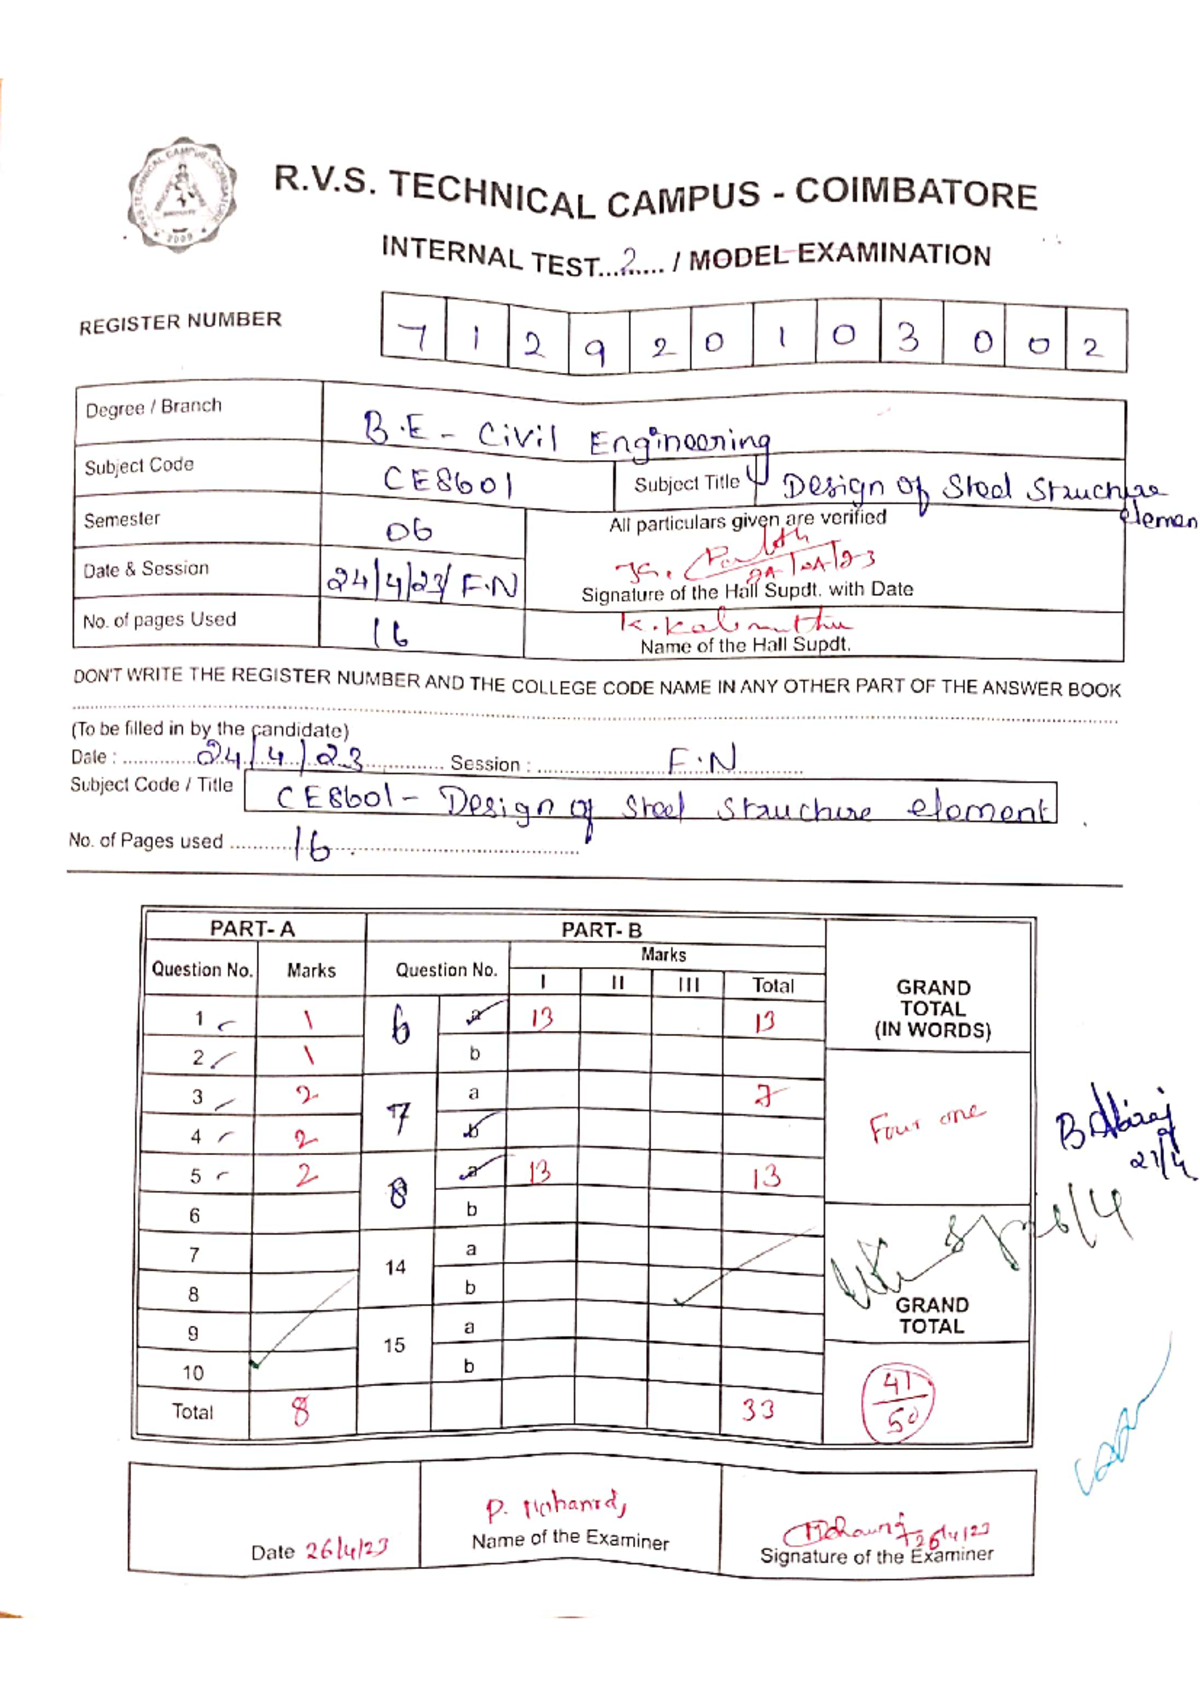 R.V.S. TECHNICAL CAMPUS - COIMBATORE
INTERNAL TEST...2...... / MODEL EXAMINATION
REGISTER NUMBER 7 1 2 9 2 0 1 0 3 0 0 2
Degree / Branch B.E - Civil Engineering
Subject Code CE8601 Subject Title Design of Steel Structure elemen
Semester 06 All particulars given are verified
Date & Session 24/4/23/ F.N Signature of the Hall Supdt. with Date
No. of pages Used 16 Name of the Hall Supdt.
DON'T WRITE THE REGISTER NUMBER AND THE COLLEGE CODE NAME IN ANY OTHER PART OF THE ANSWER BOOK
(To be filled in by the candidate)
Date : 24/4/23 Session : F.N
Subject Code / Title CE8601 - Design of Steel Structure element
No. of Pages used 16
PART- A PART- B
Question No. Marks Question No. Marks GRAND TOTAL (IN WORDS)
I II III Total
1 1 6 a 13 13
2 1 b
3 2 7 a 7 Four one
4 2 b
5 2 8 a 13 13
6 b
7 14 a
8 b GRAND TOTAL
9 15 a
10 b
Total 8 33 41/50
Date 26/4/23 Name of the Examiner 26/4/23
Signature of the Examiner